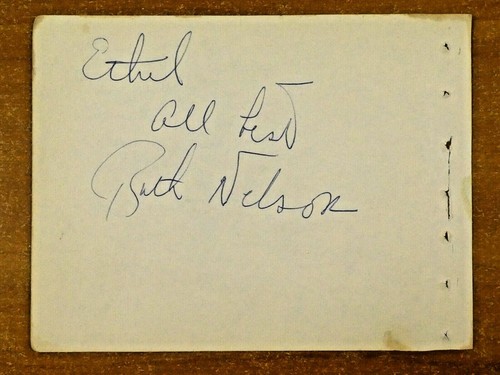 Ethel
All best
Ruth Nelson